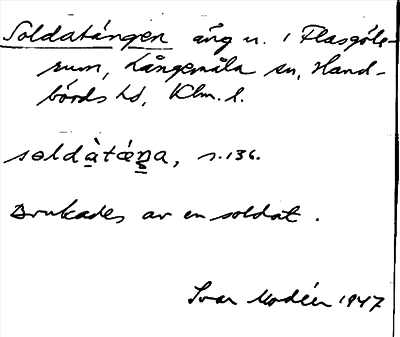 Soldatängen äng n. i Flasgöle-
rum, Långemåla sn, Hand-
börds hd, Klm. l.
səldàtæŋa, s. 136.
Brukades av en soldat.
Ivar Modéer 1947